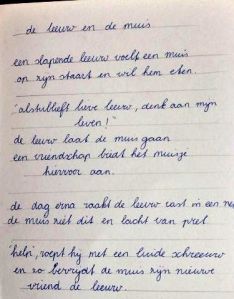 de leeuw en de muis
een slapende leeuw voelt een muis
op zijn staart en wil hem eten.
"alstublieft lieve leeuw, denk aan mijn
leven!"
de leeuw laat de muis gaan
een vriendschap biedt het muisje
hiervoor aan.
de dag erna raakt de leeuw vast in een ne
de muis ziet dit en lacht van pret
'help', roept hij met een luide schreeuw
en zo bevrijdt de muis zijn nieuwe
vriend de leeuw.